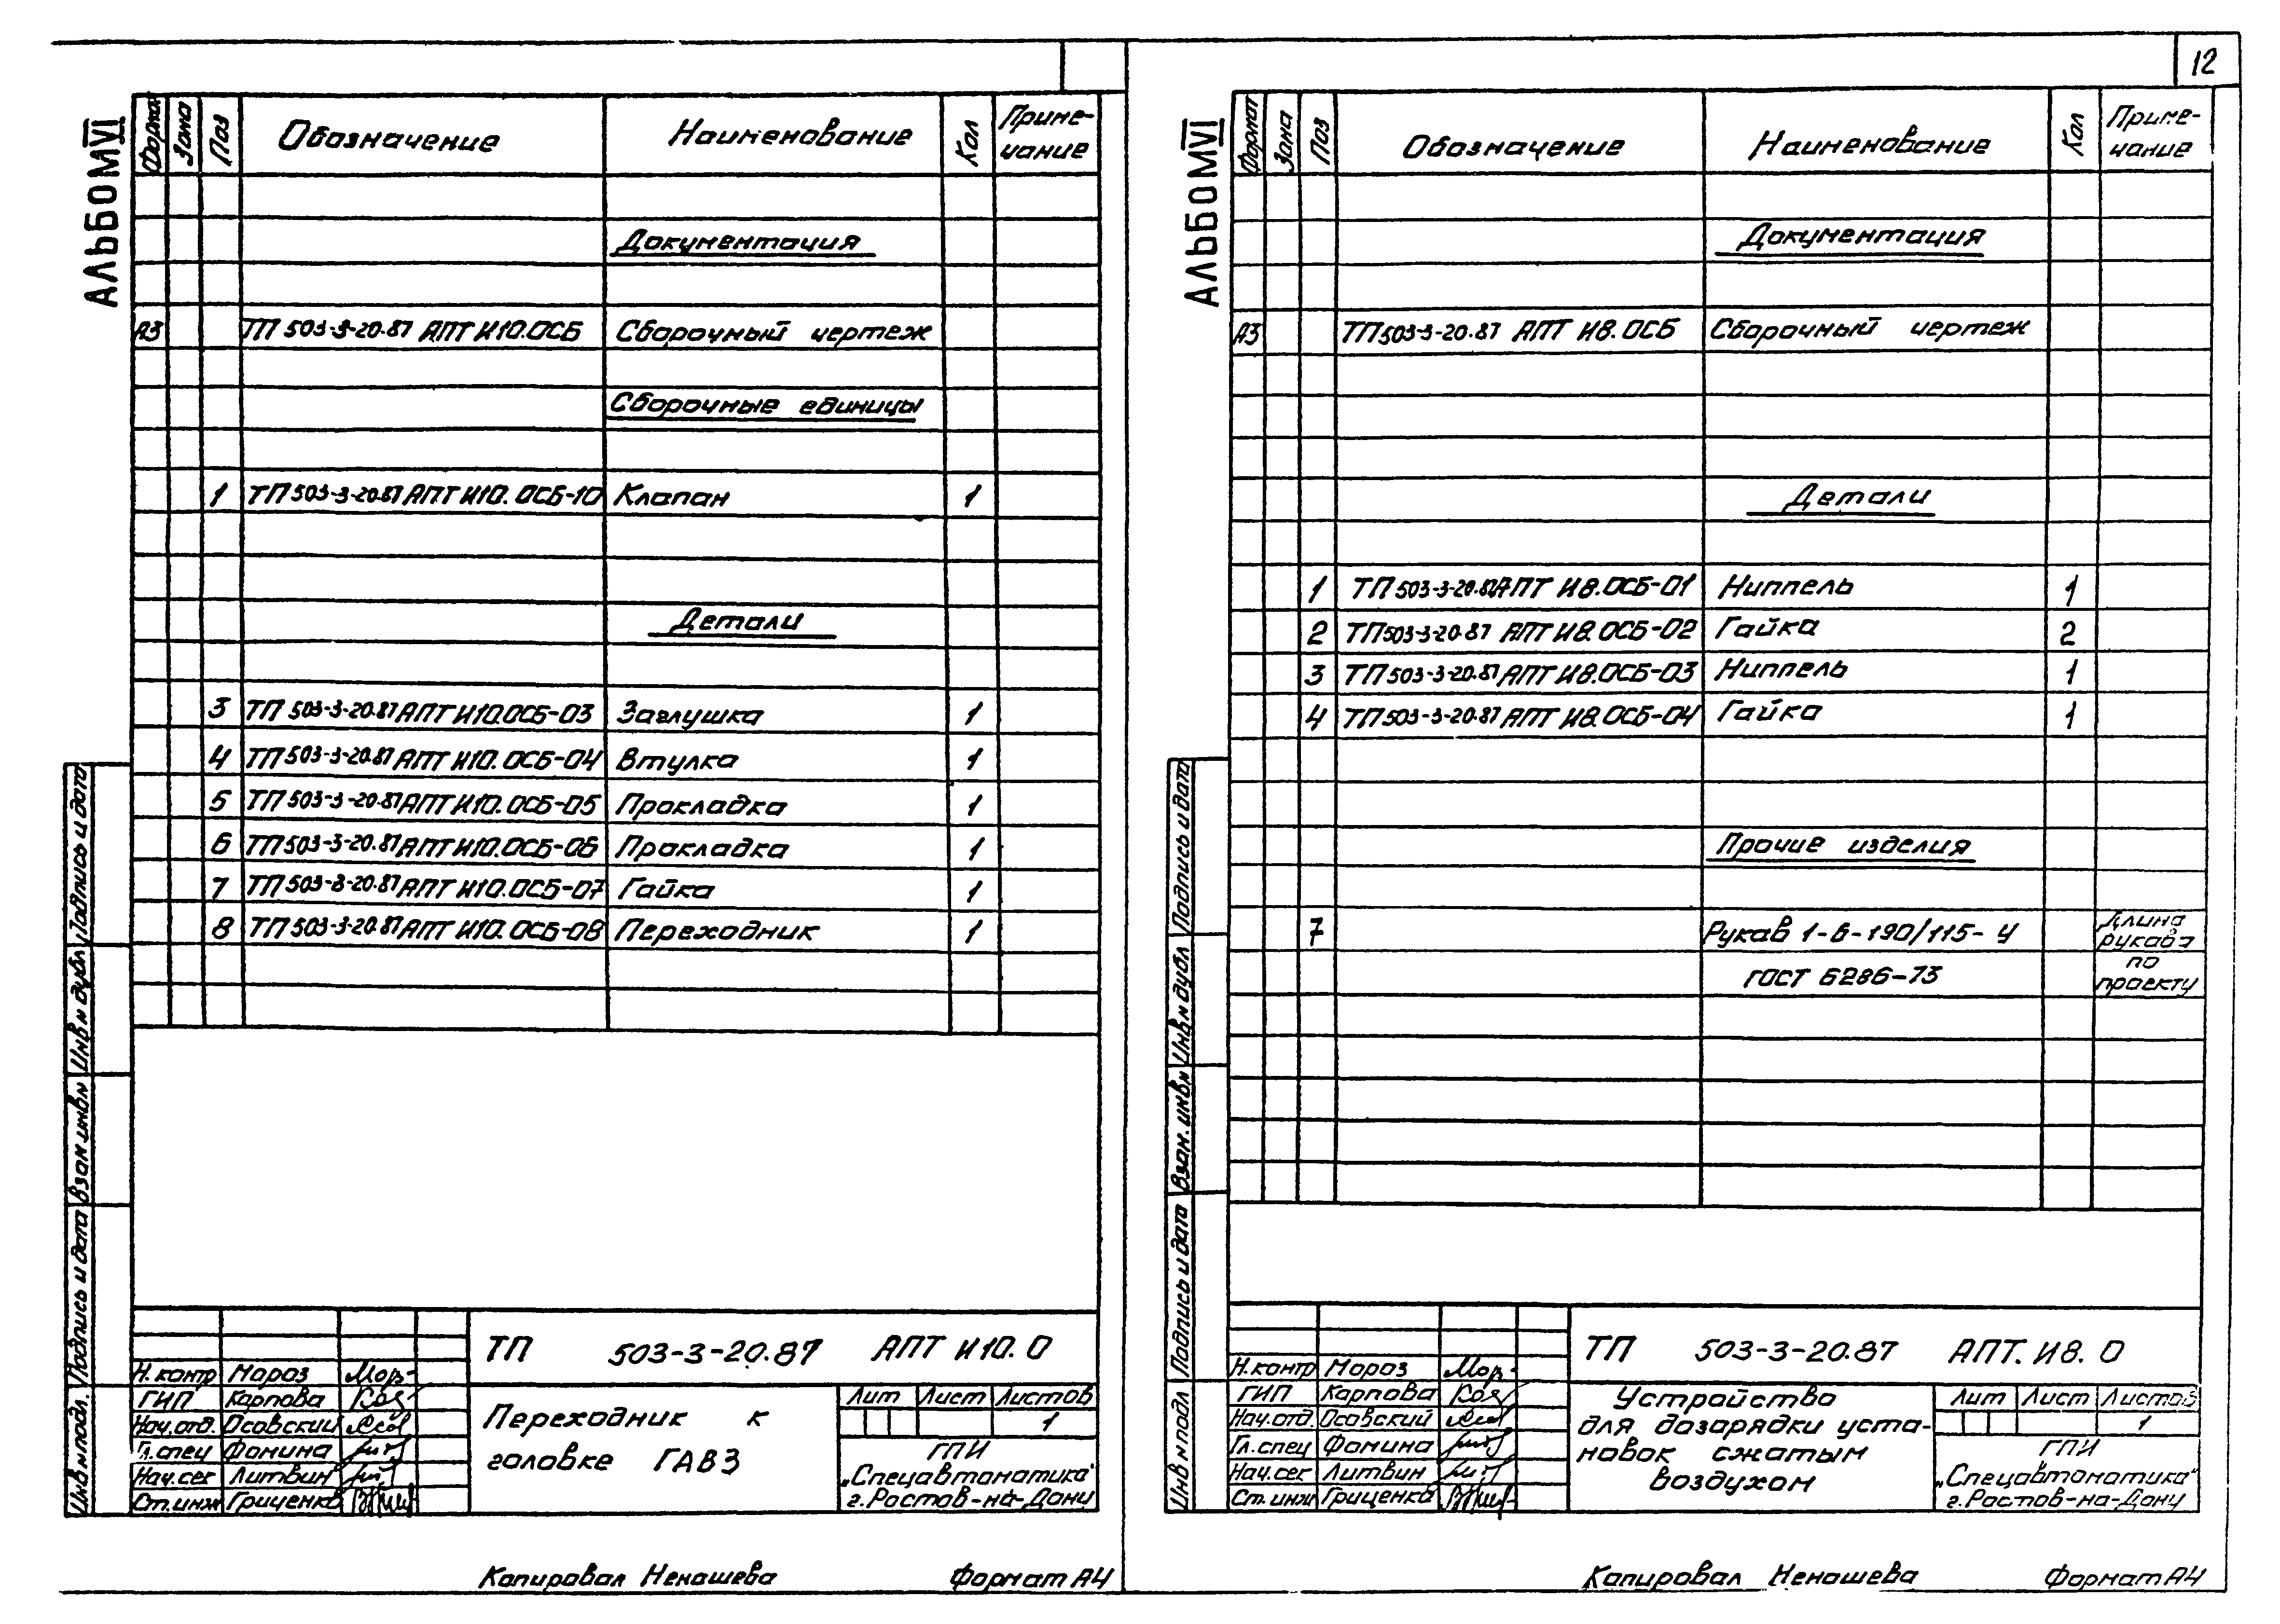 12
АЛЬБОМ VI
Формат Зона Поз Обозначение Наименование Кол Приме-
чание
Документация
А3 ТП 503-3-20.87 АПТ И10.0СБ Сборочный чертеж
Сборочные единицы
1 ТП 503-3-20.87 АПТ И10.0СБ-10 Клапан 1
Детали
3 ТП 503-3-20.87 АПТ И10.0СБ-03 Заглушка 1
4 ТП 503-3-20.87 АПТ И10.0СБ-04 Втулка 1
5 ТП 503-3-20.87 АПТ И10.0СБ-05 Прокладка 1
6 ТП 503-3-20.87 АПТ И10.0СБ-06 Прокладка 1
7 ТП 503-3-20.87 АПТ И10.0СБ-07 Гайка 1
8 ТП 503-3-20.87 АПТ И10.0СБ-08 Переходник 1
Подпись и дата
Инв N дубл
Взам инв N
Подпись и дата
Инв N подл.
ТП 503-3-20.87 АПТ И10.0
Н.контр Мороз Мор-
ГИП Карпова
Нач.отд. Осовский
Гл.спец Фонина
Нач.сек Литвин
Ст.инж Гриценко
Переходник к
головке ГАВЗ
Лит Лист Листов
1
ГПИ
„Спецавтоматика"
г.Ростов-на-Дону
Копировал Ненашева Формат А4
АЛЬБОМ VI
Формат Зона Поз Обозначение Наименование Кол Приме-
чание
Документация
А3 ТП 503-3-20.87 АПТ И8.0СБ Сборочный чертеж
Детали
1 ТП 503-3-20.87 АПТ И8.0СБ-01 Ниппель 1
2 ТП 503-3-20.87 АПТ И8.0СБ-02 Гайка 2
3 ТП 503-3-20.87 АПТ И8.0СБ-03 Ниппель 1
4 ТП 503-3-20.87 АПТ И8.0СБ-04 Гайка 1
Прочие изделия
7 Рукав 1-6-190/115-У Длина
рукава
ГОСТ 6286-73 по
проекту
Подпись и дата
Инв N дубл
Взам. инв N
Подпись и дата
Инв N подл
ТП 503-3-20.87 АПТ. И8. 0
Н.контр Мороз Мор-
ГИП Карпова
Нач.отд. Осовский
Гл.спец Фонина
Нач.сек Литвин
Ст.инж Гриценко
Устройство
для дозарядки уста-
новок сжатым
воздухом
Лит Лист Листов
1
ГПИ
„Спецавтоматика"
г.Ростов-на-Дону
Копировал Ненашева Формат А4